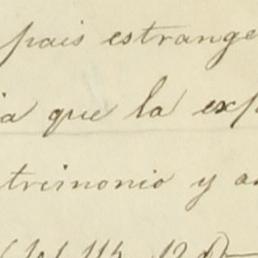 pais estrange
ia que la exp
trimonio y a